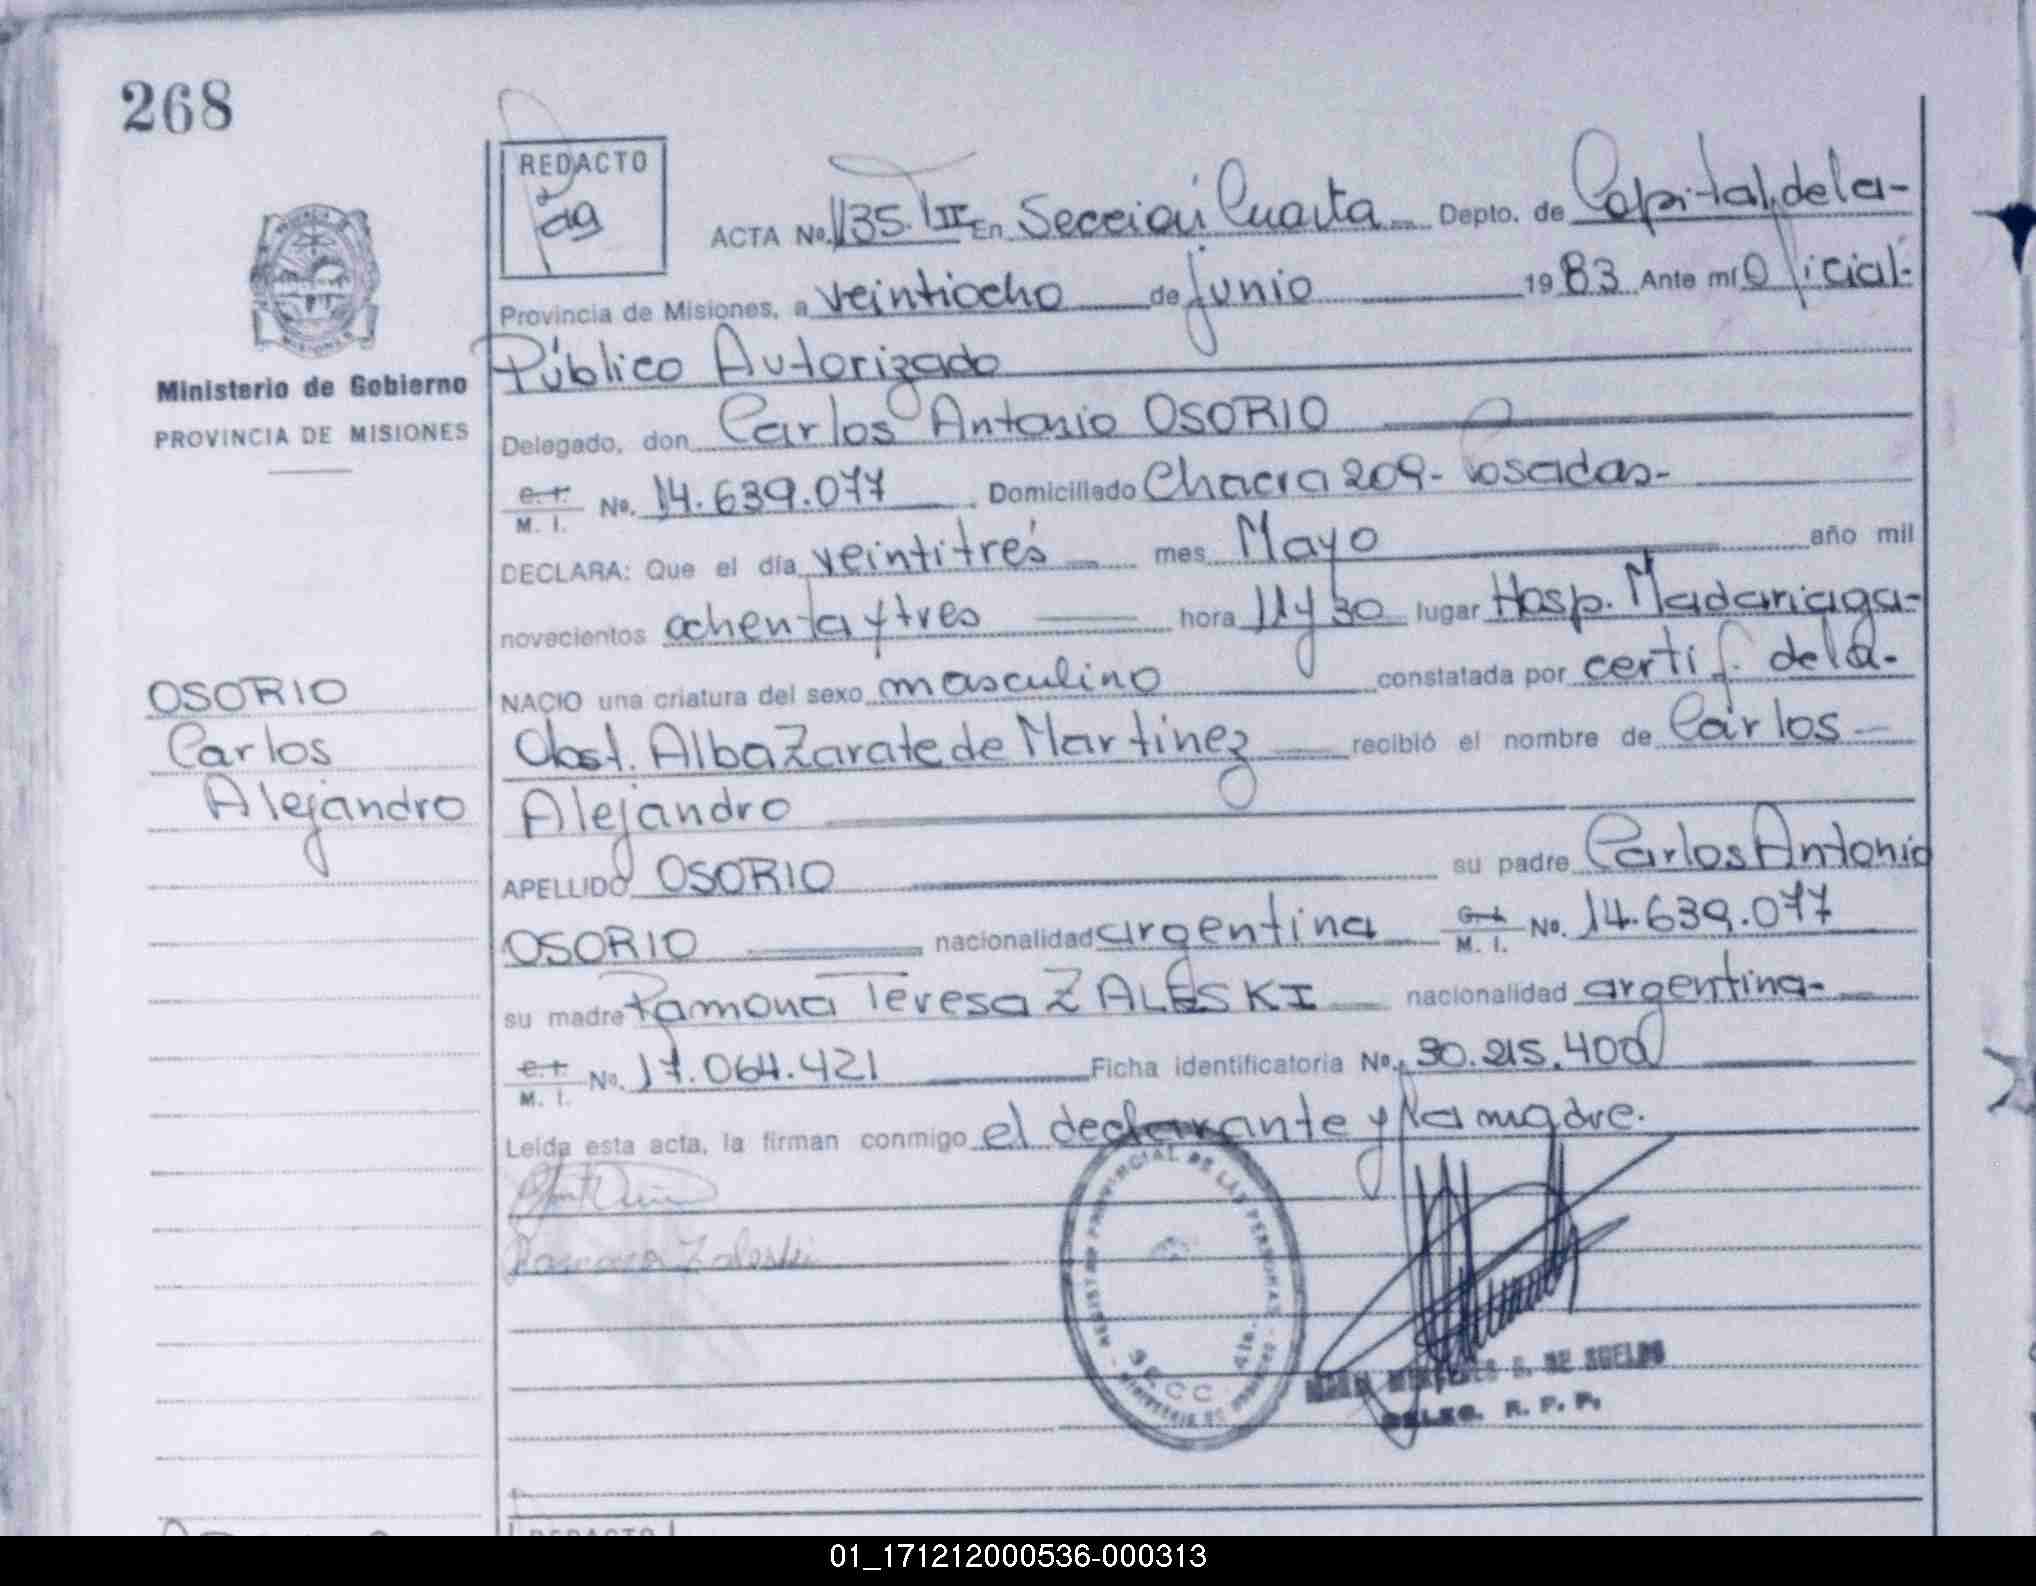 268
REDACTO
ag
ACTA No. 1135. TII En Sección Cuarta Depto. de Capital, de la-
Provincia de Misiones, a veintiocho de junio 1983 Ante mí Oficial-
Público Autorizado
Ministerio de Gobierno
PROVINCIA DE MISIONES
Delegado, don Carlos Antonio OSORIO
C. I. M. I. No. 14.639.077 Domiciliado Chacra 209- Posadas-
DECLARA: Que el día veintitrés mes Mayo año mil
novecientos ochenta y tres hora 11 y 30 lugar Hosp. Madariaga-
NACIO una criatura del sexo masculino constatada por certif. de la-
OSORIO
Carlos
Alejandro
Obst. Alba Zarate de Martinez recibió el nombre de Carlos-
Alejandro
APELLIDO OSORIO su padre Carlos Antonio
OSORIO nacionalidad argentina C. I. M. I. No. 14.639.077
su madre Ramona Teresa ZALESKI nacionalidad argentina-
C. I. M. I. No. 17.064.421 Ficha identificatoria No. 30.215.400
Leída esta acta, la firman conmigo el declarante y la madre.
Ramona Zaleski
REGISTRO PROVINCIAL DE LAS PERSONAS
SECC 4ta.
DE SUELDO
DELEG. R. P. P.
REDACTO
01_171212000536-000313